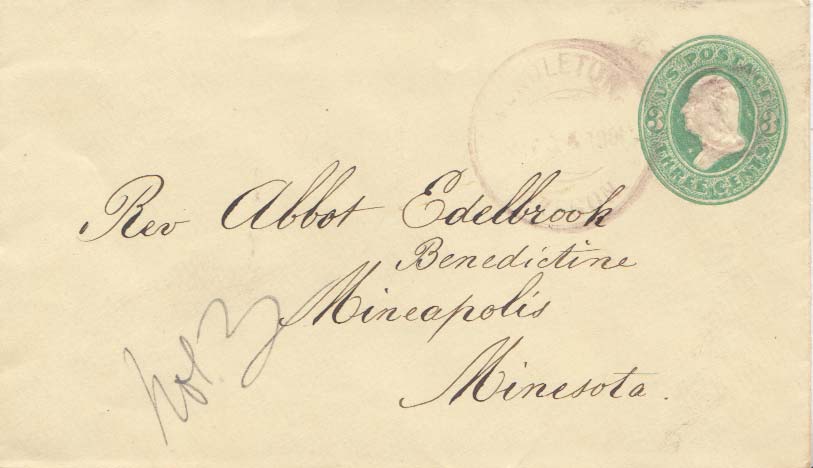 U.S. POSTAGE
THREE CENTS
Rev Abbot Edelbrook
Benedictine
Mineapolis
Minesota.